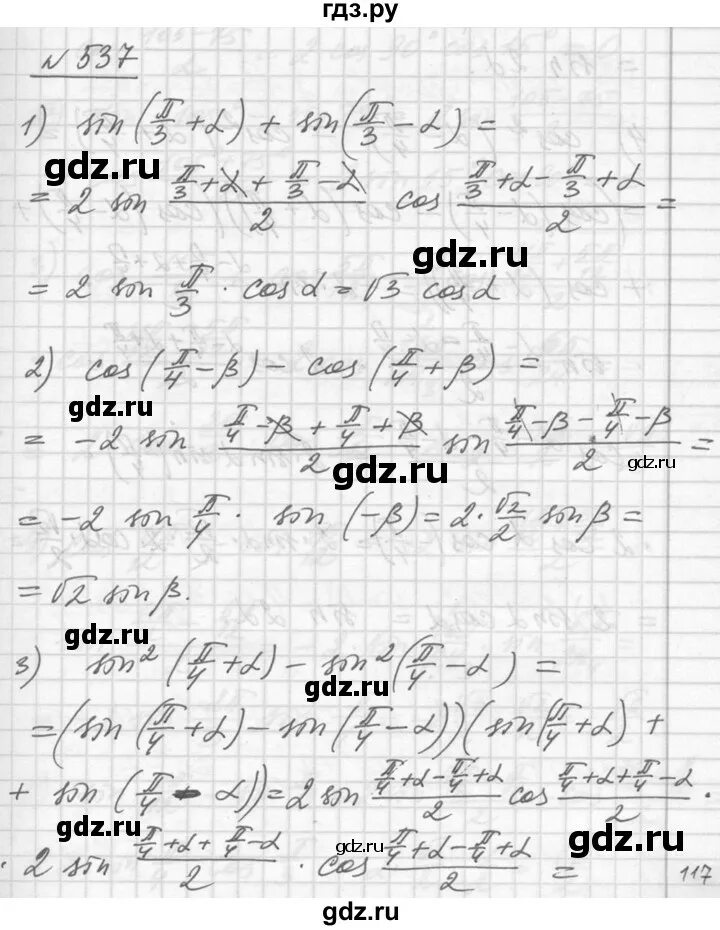 гдз.ру
№ 537
1) sin(π/3 + α) + sin(π/3 − α) =
gdz.ru
= 2 sin (π/3 + α + π/3 − α)/2 cos (π/3 + α − π/3 + α)/2 =
gdz.ru
= 2 sin π/3 · cos α = √3 cos α
2) cos(π/4 − β) − cos(π/4 + β) =
gdz.ru
= −2 sin (π/4 − β + π/4 + β)/2 sin (π/4 − β − π/4 − β)/2 =
gdz.ru gdz.ru
= −2 sin π/4 · sin(−β) = 2 · √2/2 sin β =
gdz.ru
= √2 sin β.
gdz.ru
3) sin²(π/4 + α) − sin²(π/4 − α) =
gdz.ru
= (sin(π/4 + α) − sin(π/4 − α))(sin(π/4 + α) +
+ sin(π/4 − α)) = 2 sin (π/4 + α − π/4 + α)/2 cos (π/4 + α + π/4 − α)/2 ·
gdz.ru
· 2 sin (π/4 + α + π/4 − α)/2 · cos (π/4 + α − π/4 + α)/2 =
gdz.ru gdz.ru
117
gdz.ru